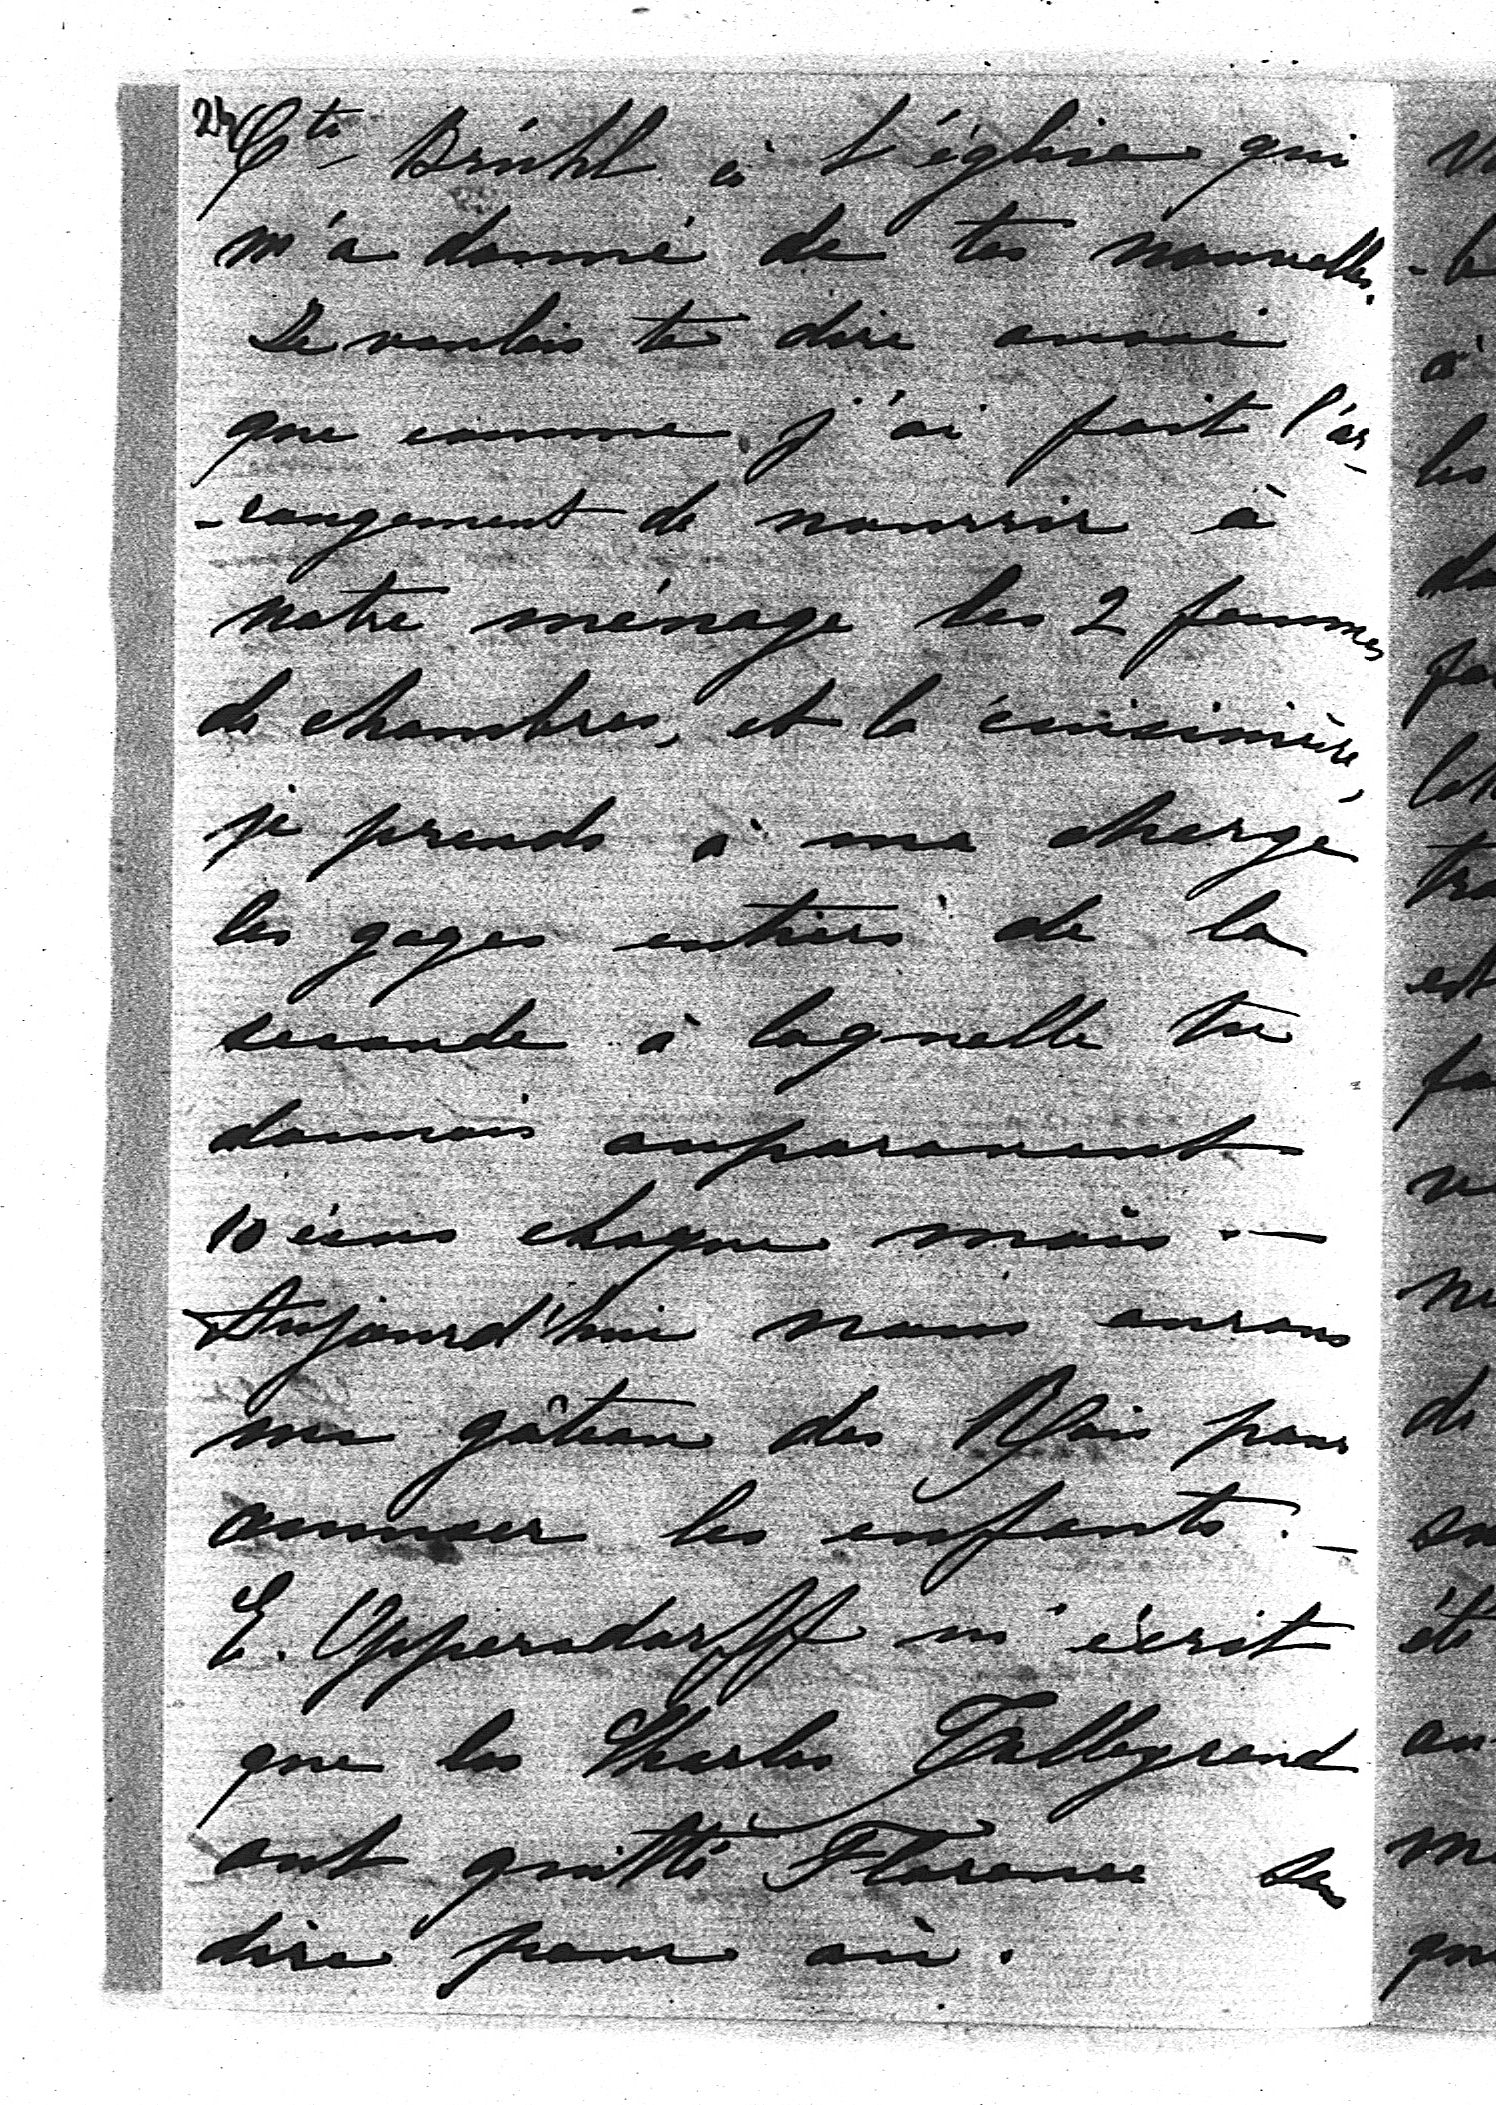 Cte Brühl à l'église qui
m'a donné de tes nouvelles.
Je voulais te dire aussi
que comme j'ai fait l'ar-
-rangement de nourrir à
notre ménage les 2 femmes
de chambres, et la cuisinière,
je prends à ma charge
les gages entiers de la
seconde à laquelle tu
donnais auparavant
10 écus chaque mois. —
Aujourd'hui nous aurons
un gâteau des Rois pour
amuser les enfants. —
E. Oppersdorff m'écrit
que les Charles Talleyrand
ont quitté Florence sans
dire pour où.